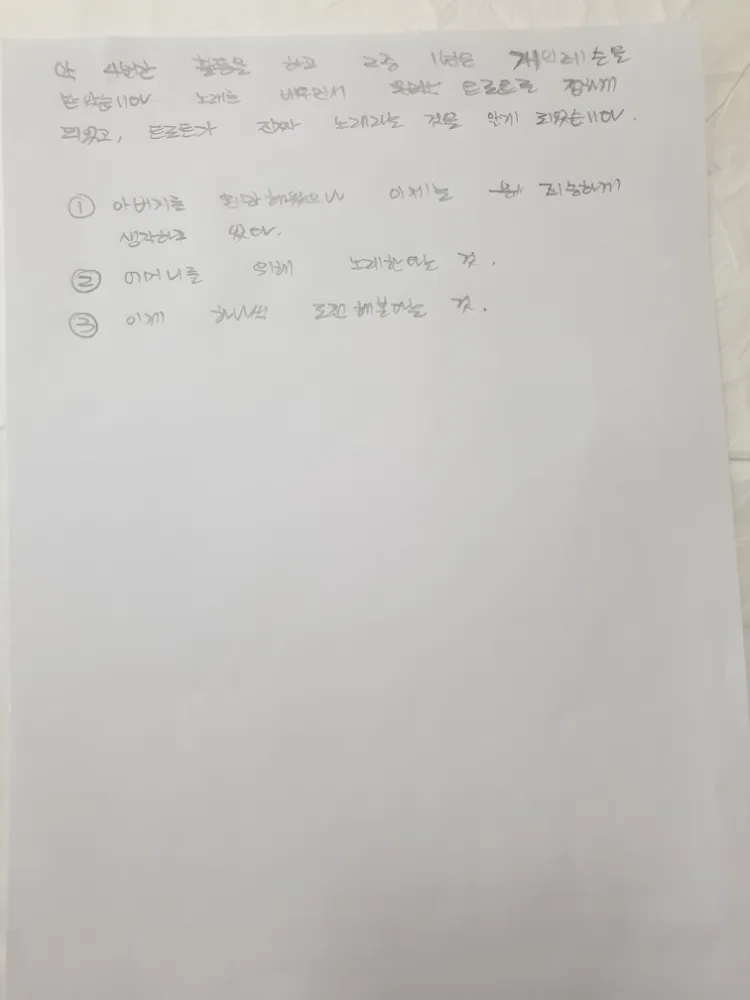 약 4년간 활동을 하고 그중 1년은 개인레슨을
받았습니다 노래를 배우면서 트로트로 접하게
되었고, 트로트가 진짜 노래라는 것을 알게 되었습니다.
① 아버지를 원망해왔으나 이제는 죄송하게
생각하고 있다.
② 어머니를 위해 노래한다는 것.
③ 이제 하나씩 도전해본다는 것.